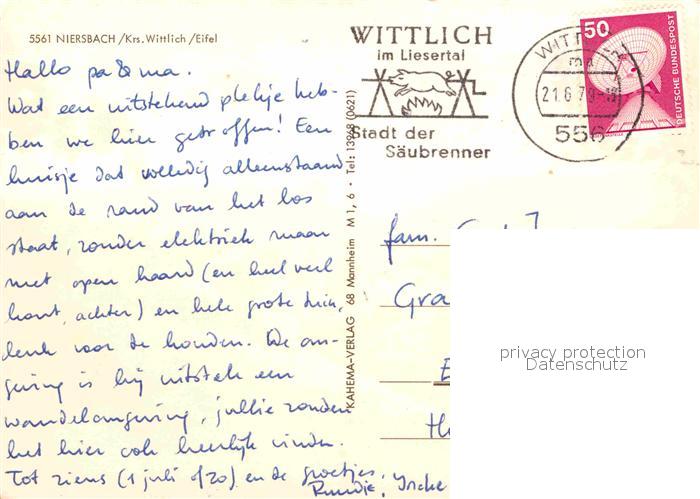 5561 NIERSBACH / Krs. Wittlich / Eifel
WITTLICH
im Liesertal
Stadt der
Säubrenner
WITTLICH
21.6.79-18
556
50
DEUTSCHE BUNDESPOST
Hallo pa & ma.
Wat een uitstekend plekje heb-
ben we hier getroffen! Een
huisje dat volledig alleenstaand
aan de rand van het bos
staat, zonder elektriek maar
met open haard (en heel veel
hout, achter) en hele grote tuin,
leuk voor de honden. De om-
geving is bij uitstek een
wandelomgeving, jullie zouden
het hier ook heerlijk vinden.
Tot ziens (1 juli of 20) en de groetjes.
Ruudje,
KAHEMA-VERLAG 68 Mannheim M 1, 6 • Tel: 13968 (0621)
fam.
Gra
privacy protection
Datenschutz